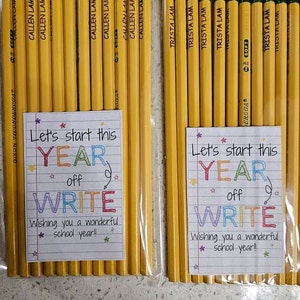 CALLEN LAM
CALLEN LAM
CALLEN LAM
CALLEN LAM
Let's start this
YEAR
off
WRITE
Wishing you a wonderful
school year!!
TRISTA LAM
TRISTA LAM
TRISTA LAM
TRISTA LAM
TRISTA LAM
Let's start this
YEAR
off
WRITE
Wishing you a wonderful
school year!!